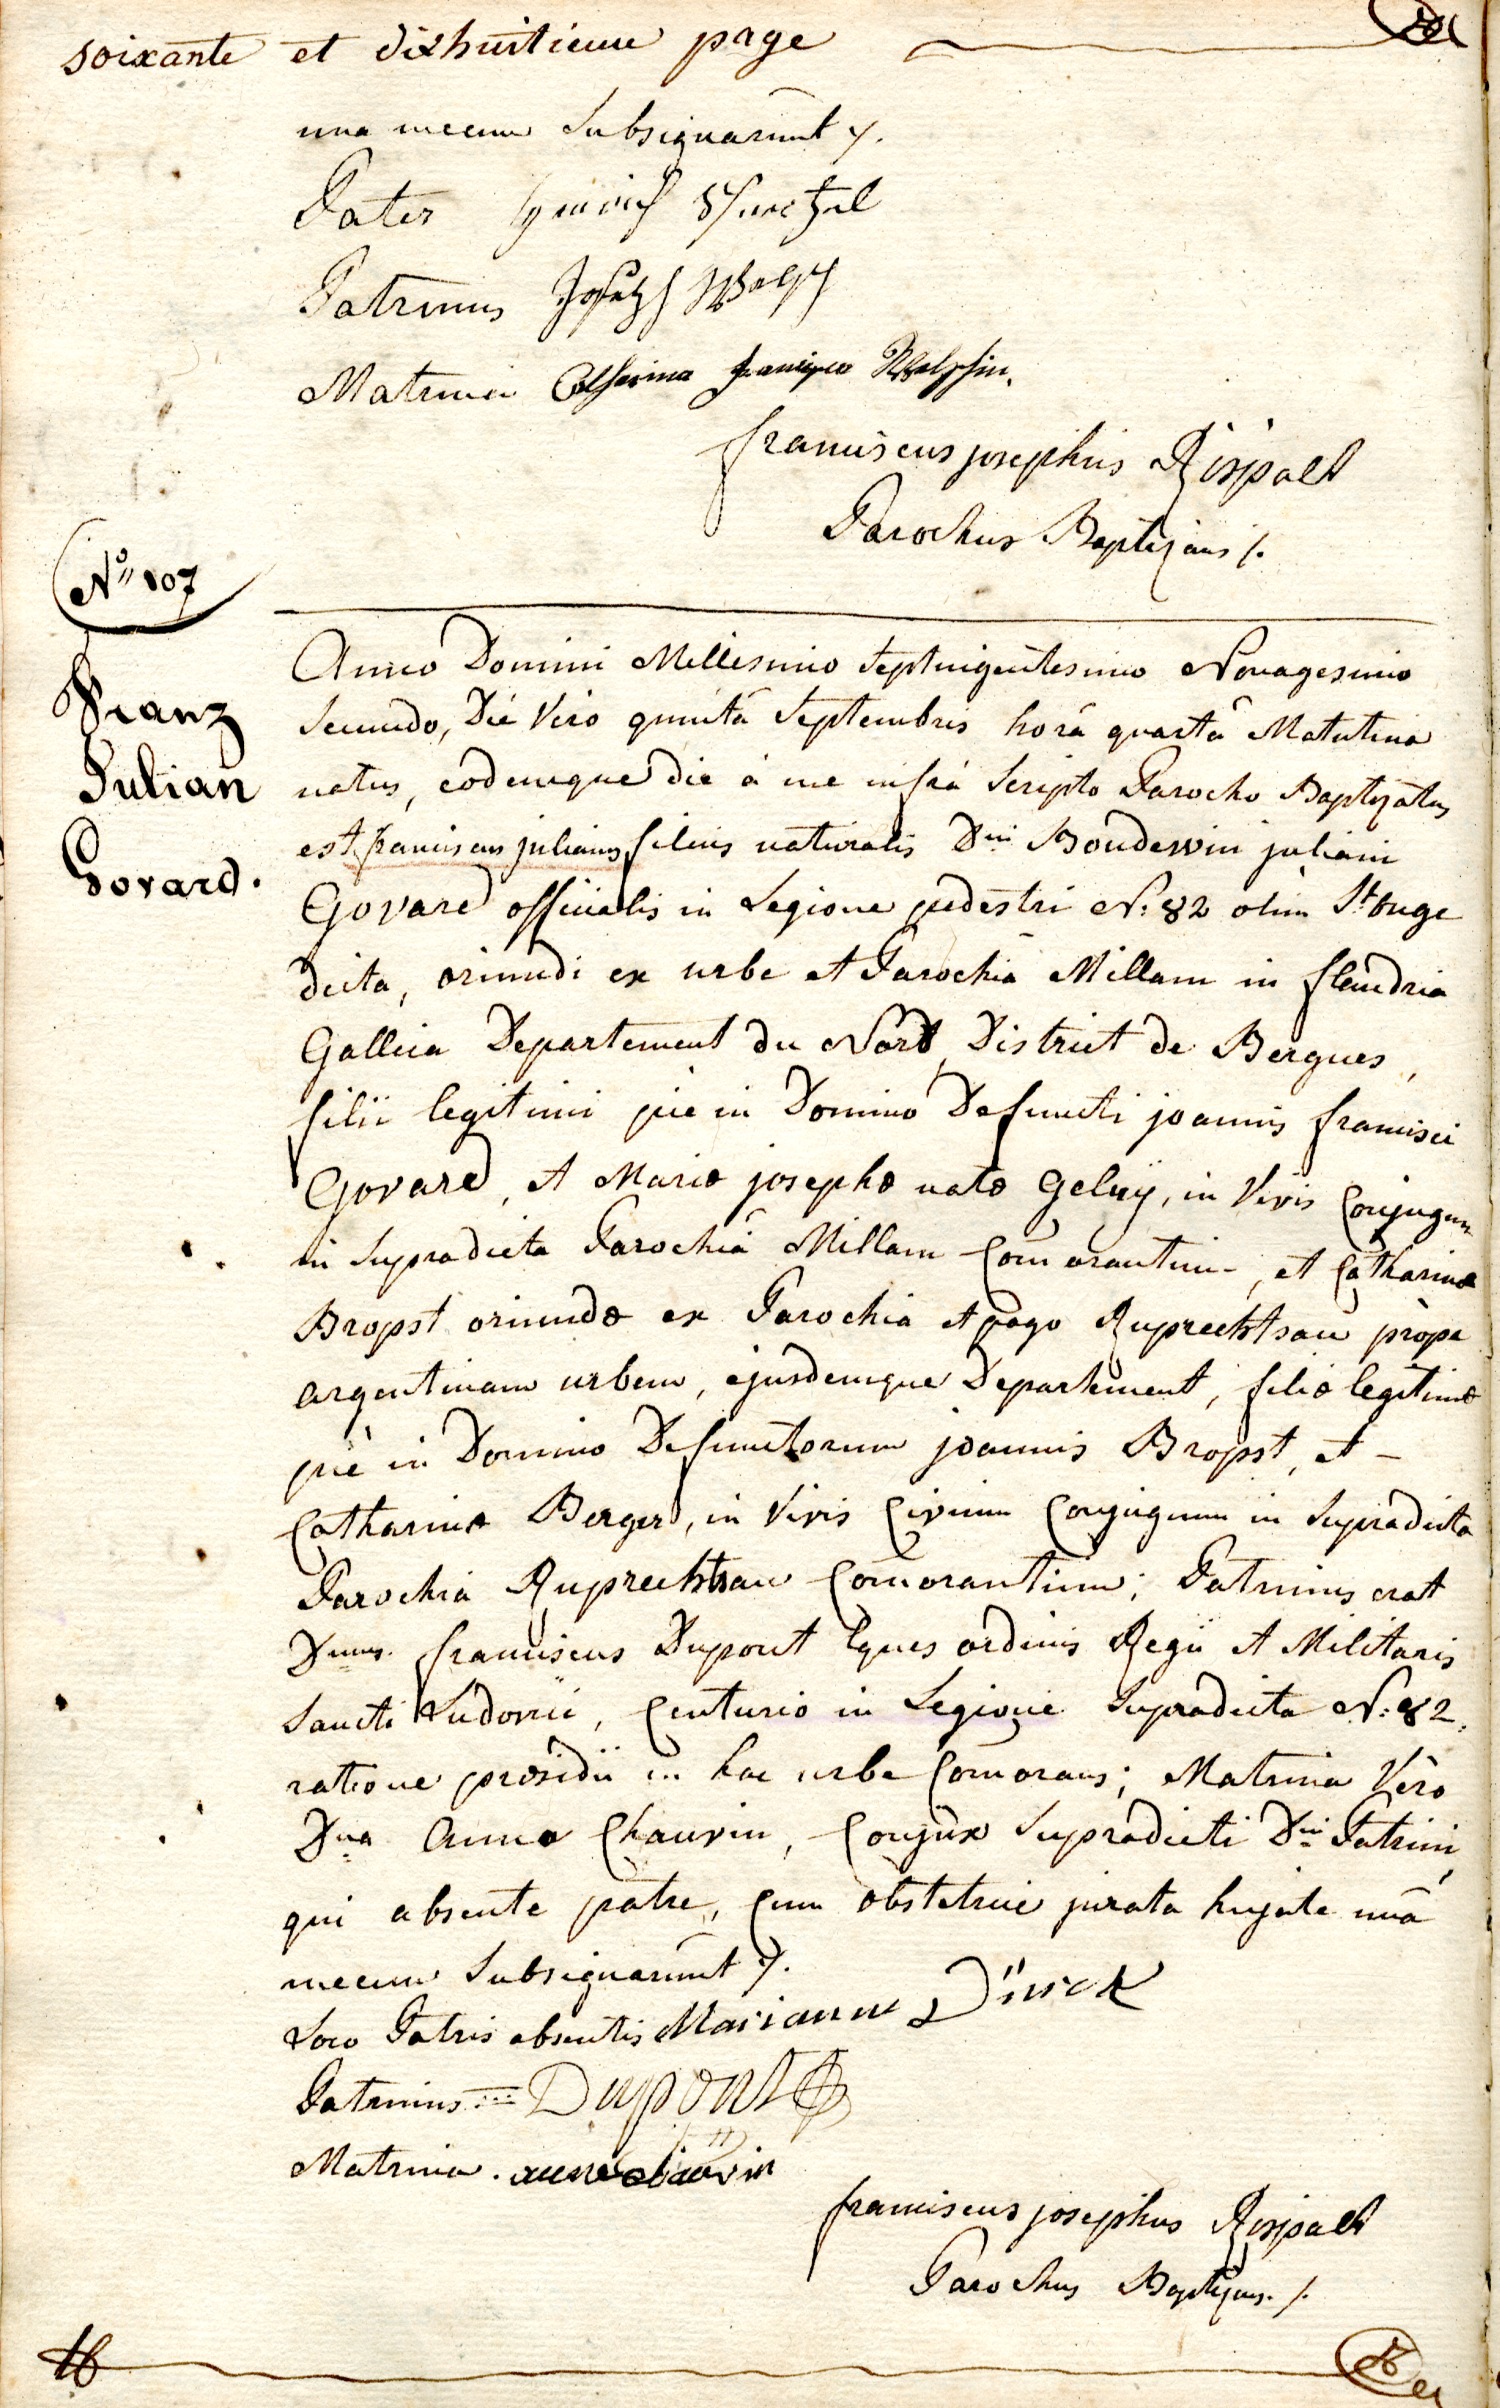 soixante et dixhuitieme page
una mecum Subsignarunt ./.
Pater
Patrinus Joseph
Matrina Catharina
franciscus josephus Rispalt
Parochus Baptizans ./.
N° 107
Franz
Julian
Govard.
Anno Domini Millesimo Septuigentesimo Nonagesimo
Secundo, Die Vero quintâ Septembris horâ quartâ Matutina
natus, eodemque die à me infrà Scripto Parocho Baptizatus
est franciscus julianus filius naturalis Dni Boudewin juliani
Govard officialis in Legione pedestri N: 82 olim
dicta, oriundi ex urbe et Parochiâ Millam in flandria
Gallica Departement du Nord, District de Bergues,
filii legitimi piè in Domino Defuncti joannis francisci
Govard, et Mariæ josephæ natæ Geluÿ, in Vivis Conjugum
in Supradicta Parochiâ Millam Com̄orantium, et Catharinæ
Bropst oriundæ ex Parochia et pago Ruprechtsau prope
argentinam urbem, ejusdemque Departement, filiæ legitimæ
piè in Domino Defunctorum joannis Bropst, et –
Catharinæ Berger, in Vivis Civium Conjugum in Supradicta
Parochiâ Ruprechtsau Com̄orantium; Patrinus erat
Dnus. franciscus Dupont Eques ordinis Regii et Militaris
Sancti Ludovici, Centurio in Legione Supradicta N: 82.
ratione præsidii in hac urbe Com̄orans; Matrina Vèro
Dna Anna Chauvin, Conjux Supradicti Dni Patrini,
qui absente patre, Cum obstetrice jurata hujate unâ
mecum Subsignarunt ./.
Loco Patris absentis Mariann
Patrinus Dupont
Matrina. anne chauvin
franciscus josephus Rispalt
Parochus Baptizans. ./.